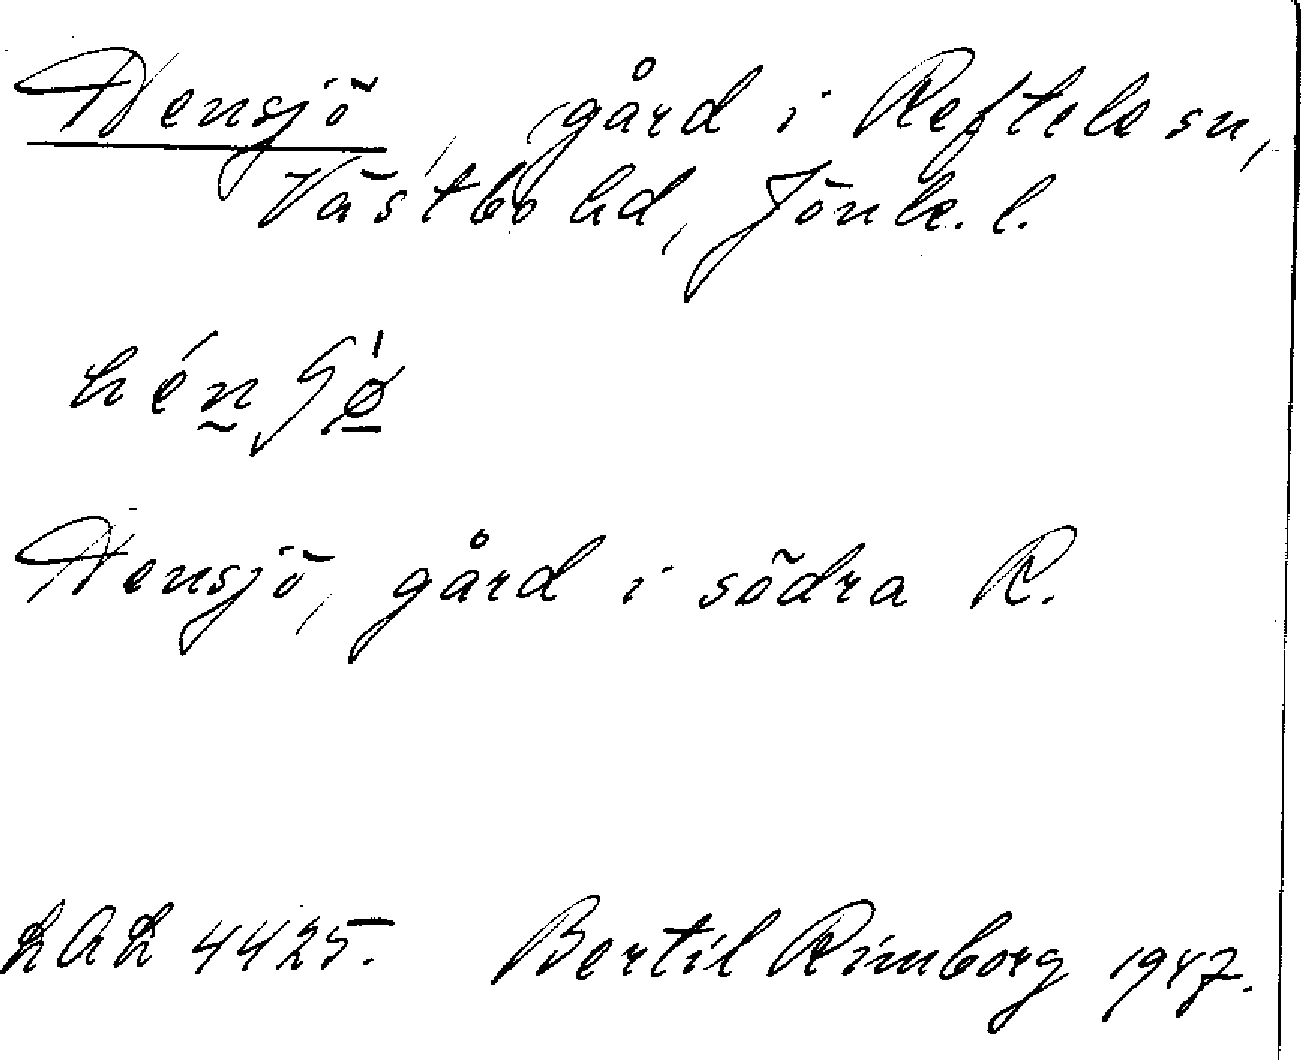 Hensjö, gård i Reftele sn,
Västbo hd, Jönk. l.
hénʃø̀
Hensjö, gård i södra R.
LAL 4425. Bertil Rimborg 1947.